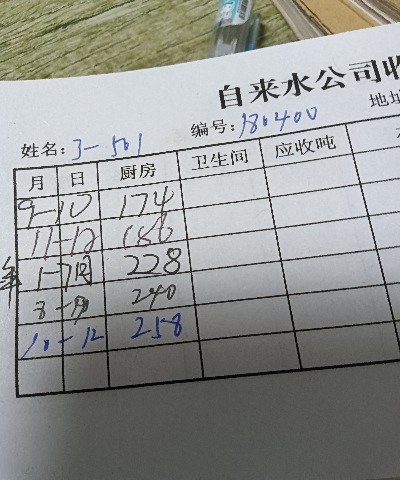 自来水公司收
姓名: 3-501 编号: 180400 地址
月 日 厨房 卫生间 应收吨
9-10 174
11-12 186
1-7 228
8-9 240
10-12 258